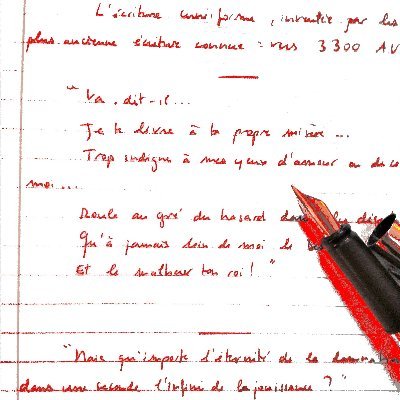 L'écriture cunéiforme, inventée par les
plus ancienne écriture connue : vers 3300 AV
"Va, dit-il...
Je te livre à ta propre misère...
Trop indigne à mes yeux d'amour ou de
moi...
Roule au gré du hasard dans les
Qu'à jamais loin de moi le
Et le malheur ton roi !"
"Mais qu'importe l'éternité de la damnation
dans une seconde l'infini de la jouissance ?"